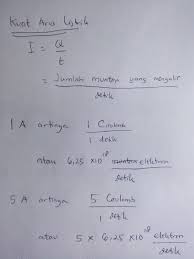 Kuat Arus Listrik
I = Q
t
= Jumlah muatan yang mengalir
detik
1 A artinya 1 Coulomb
1 detik
atau 6,25 x 10¹⁸ elektron
detik
5 A artinya 5 Coulomb
1 detik
atau 5 x 6,25 x 10¹⁸ elektron
detik